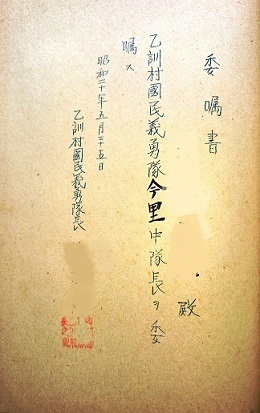 委嘱書
殿
乙訓村國民義勇隊今里中隊長ヲ委
嘱ス
昭和二十年五月二十五日
乙訓村國民義勇隊長